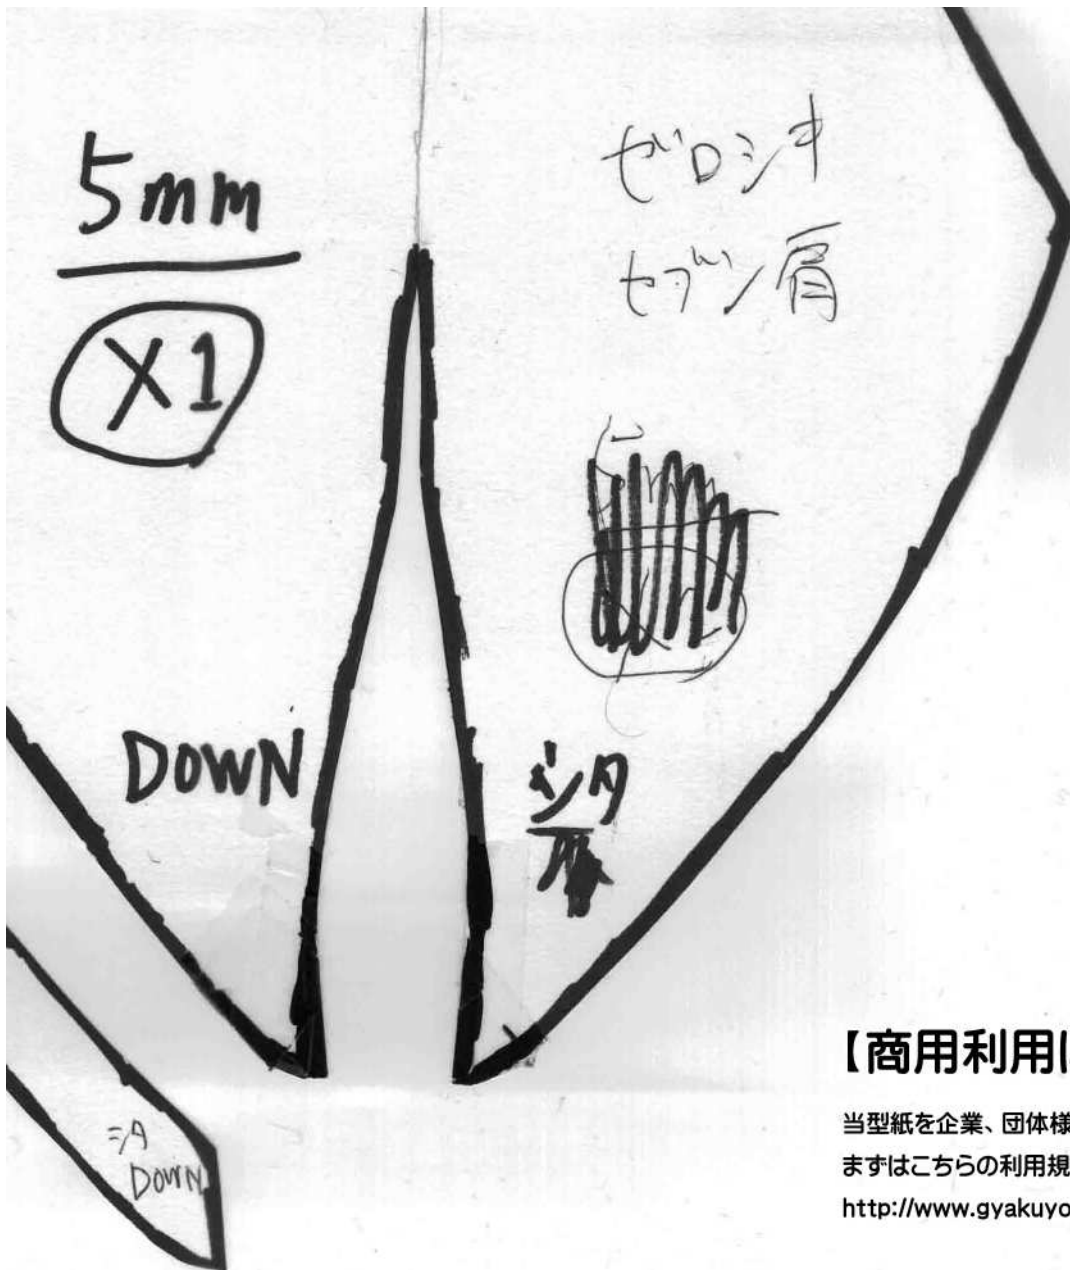 5mm
X1
ゼロシキ
セブン肩
DOWN
シタ
シタ
DOWN
【商用利用に
当型紙を企業、団体様
まずはこちらの利用規
http://www.gyakuyo